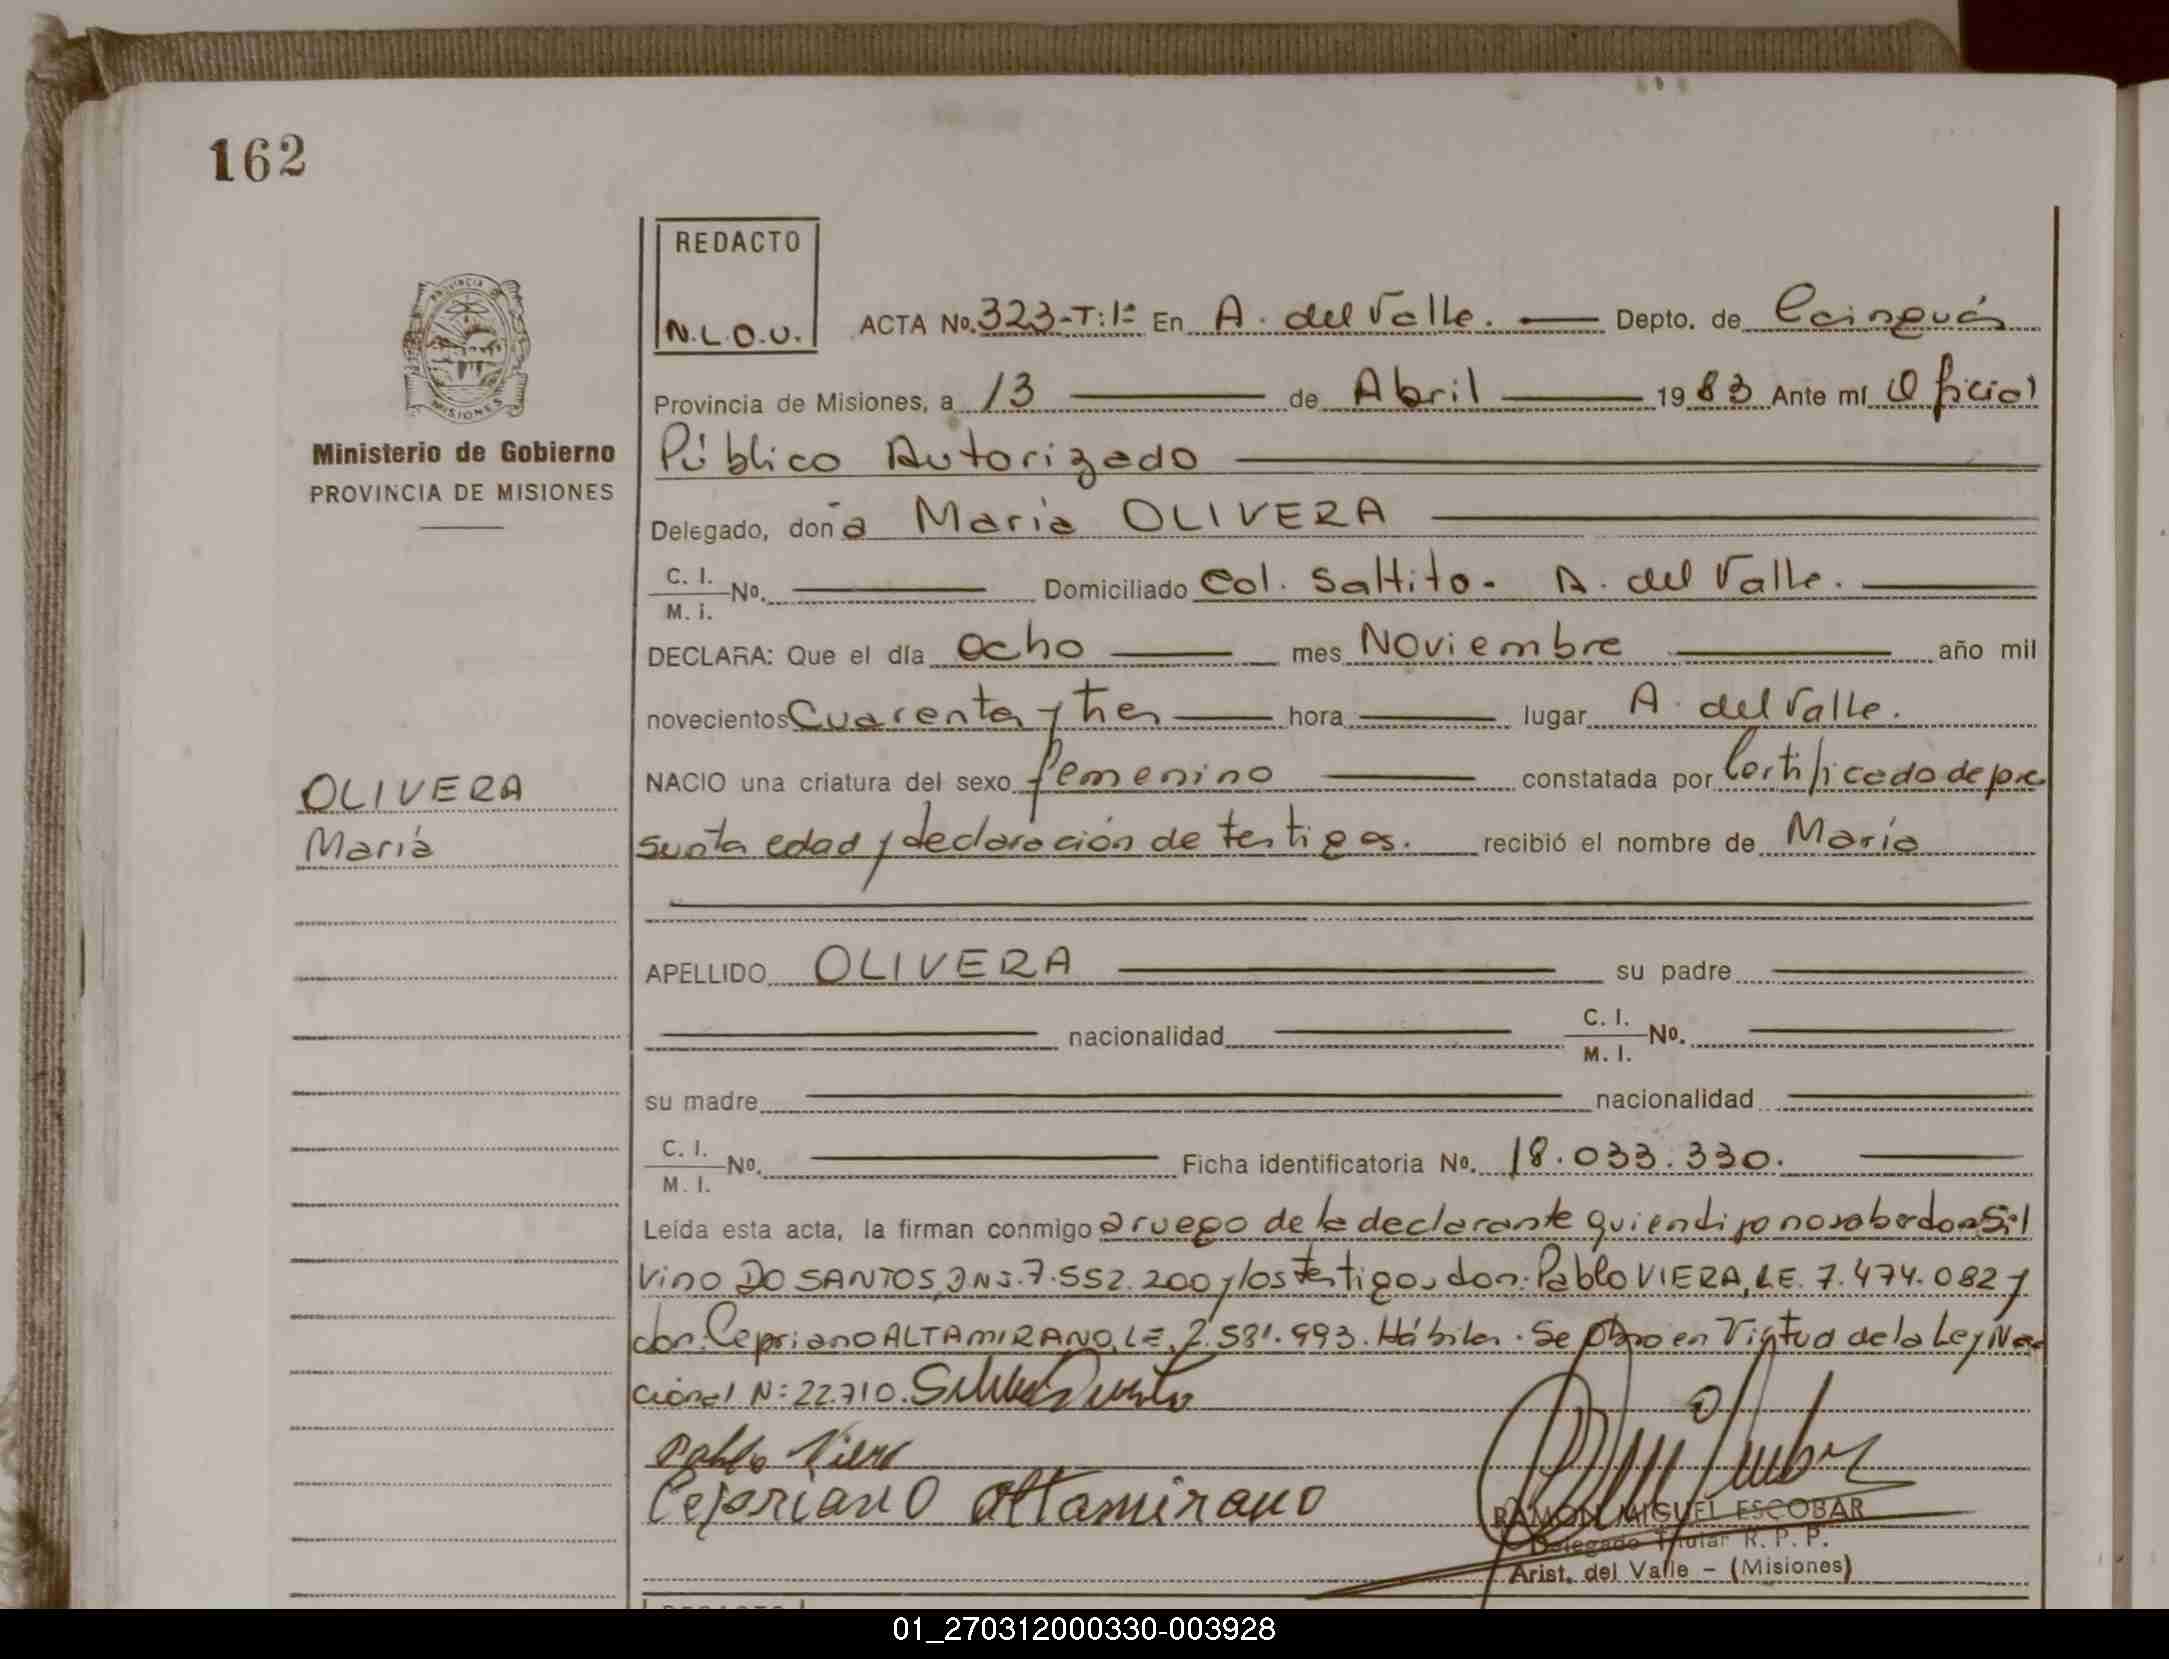 162
REDACTO
N.L.O.U.
PROVINCIA DE
MISIONES
Ministerio de Gobierno
PROVINCIA DE MISIONES
OLIVERA
María
ACTA No. 323-T:1º En A. del Valle. Depto. de Cainguás
Provincia de Misiones, a 13 de Abril 1983 Ante mí Oficial
Público Autorizado
Delegado, doña María OLIVERA
C. I. / M. I. No. Domiciliado Col. Saltito - A. del Valle.
DECLARA: Que el día ocho mes Noviembre año mil
novecientos Cuarenta y tres hora lugar A. del Valle.
NACIO una criatura del sexo femenino constatada por Certificado de pre
sunta edad y declaración de testigos. recibió el nombre de María
APELLIDO OLIVERA su padre
nacionalidad C. I. / M. I. No.
su madre nacionalidad
C. I. / M. I. No. Ficha identificatoria No. 18.033.330.
Leída esta acta, la firman conmigo a ruego de la declarante quien dijo no saber don Sil
vino DO SANTOS, DNI. 7.552.200 y los testigos don: Pablo VIERA, L.E. 7.474.082 y
don: Cepriano ALTAMIRANO, L.E. 2.581.993. Hábiles. Se Labro en Virtud de la Ley Na
cional N: 22.710.
Pablo Viera
Cepriano Altamirano
RAMON MIGUEL ESCOBAR
Delegado Titular R. P. P.
Arist. del Valle - (Misiones)
01_270312000330-003928